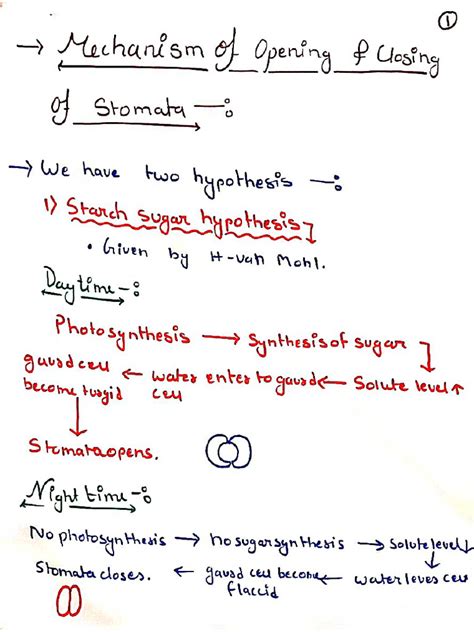 ①
→ Mechanism of Opening & Closing
of Stomata —:
→ We have two hypothesis —:
1) Starch sugar hypothesis
• Given by H-van Mohl.
Daytime -:
Photosynthesis → Synthesis of sugar
gaurd cell ← water enter to gaurd ← Solute level ↑
become turgid cell
↓
Stomata opens.
Night time -:
No photosynthesis → no sugar synthesis → Solute level ↓
Stomata closes. ← gaurd cell become ← water leves cell
flaccid